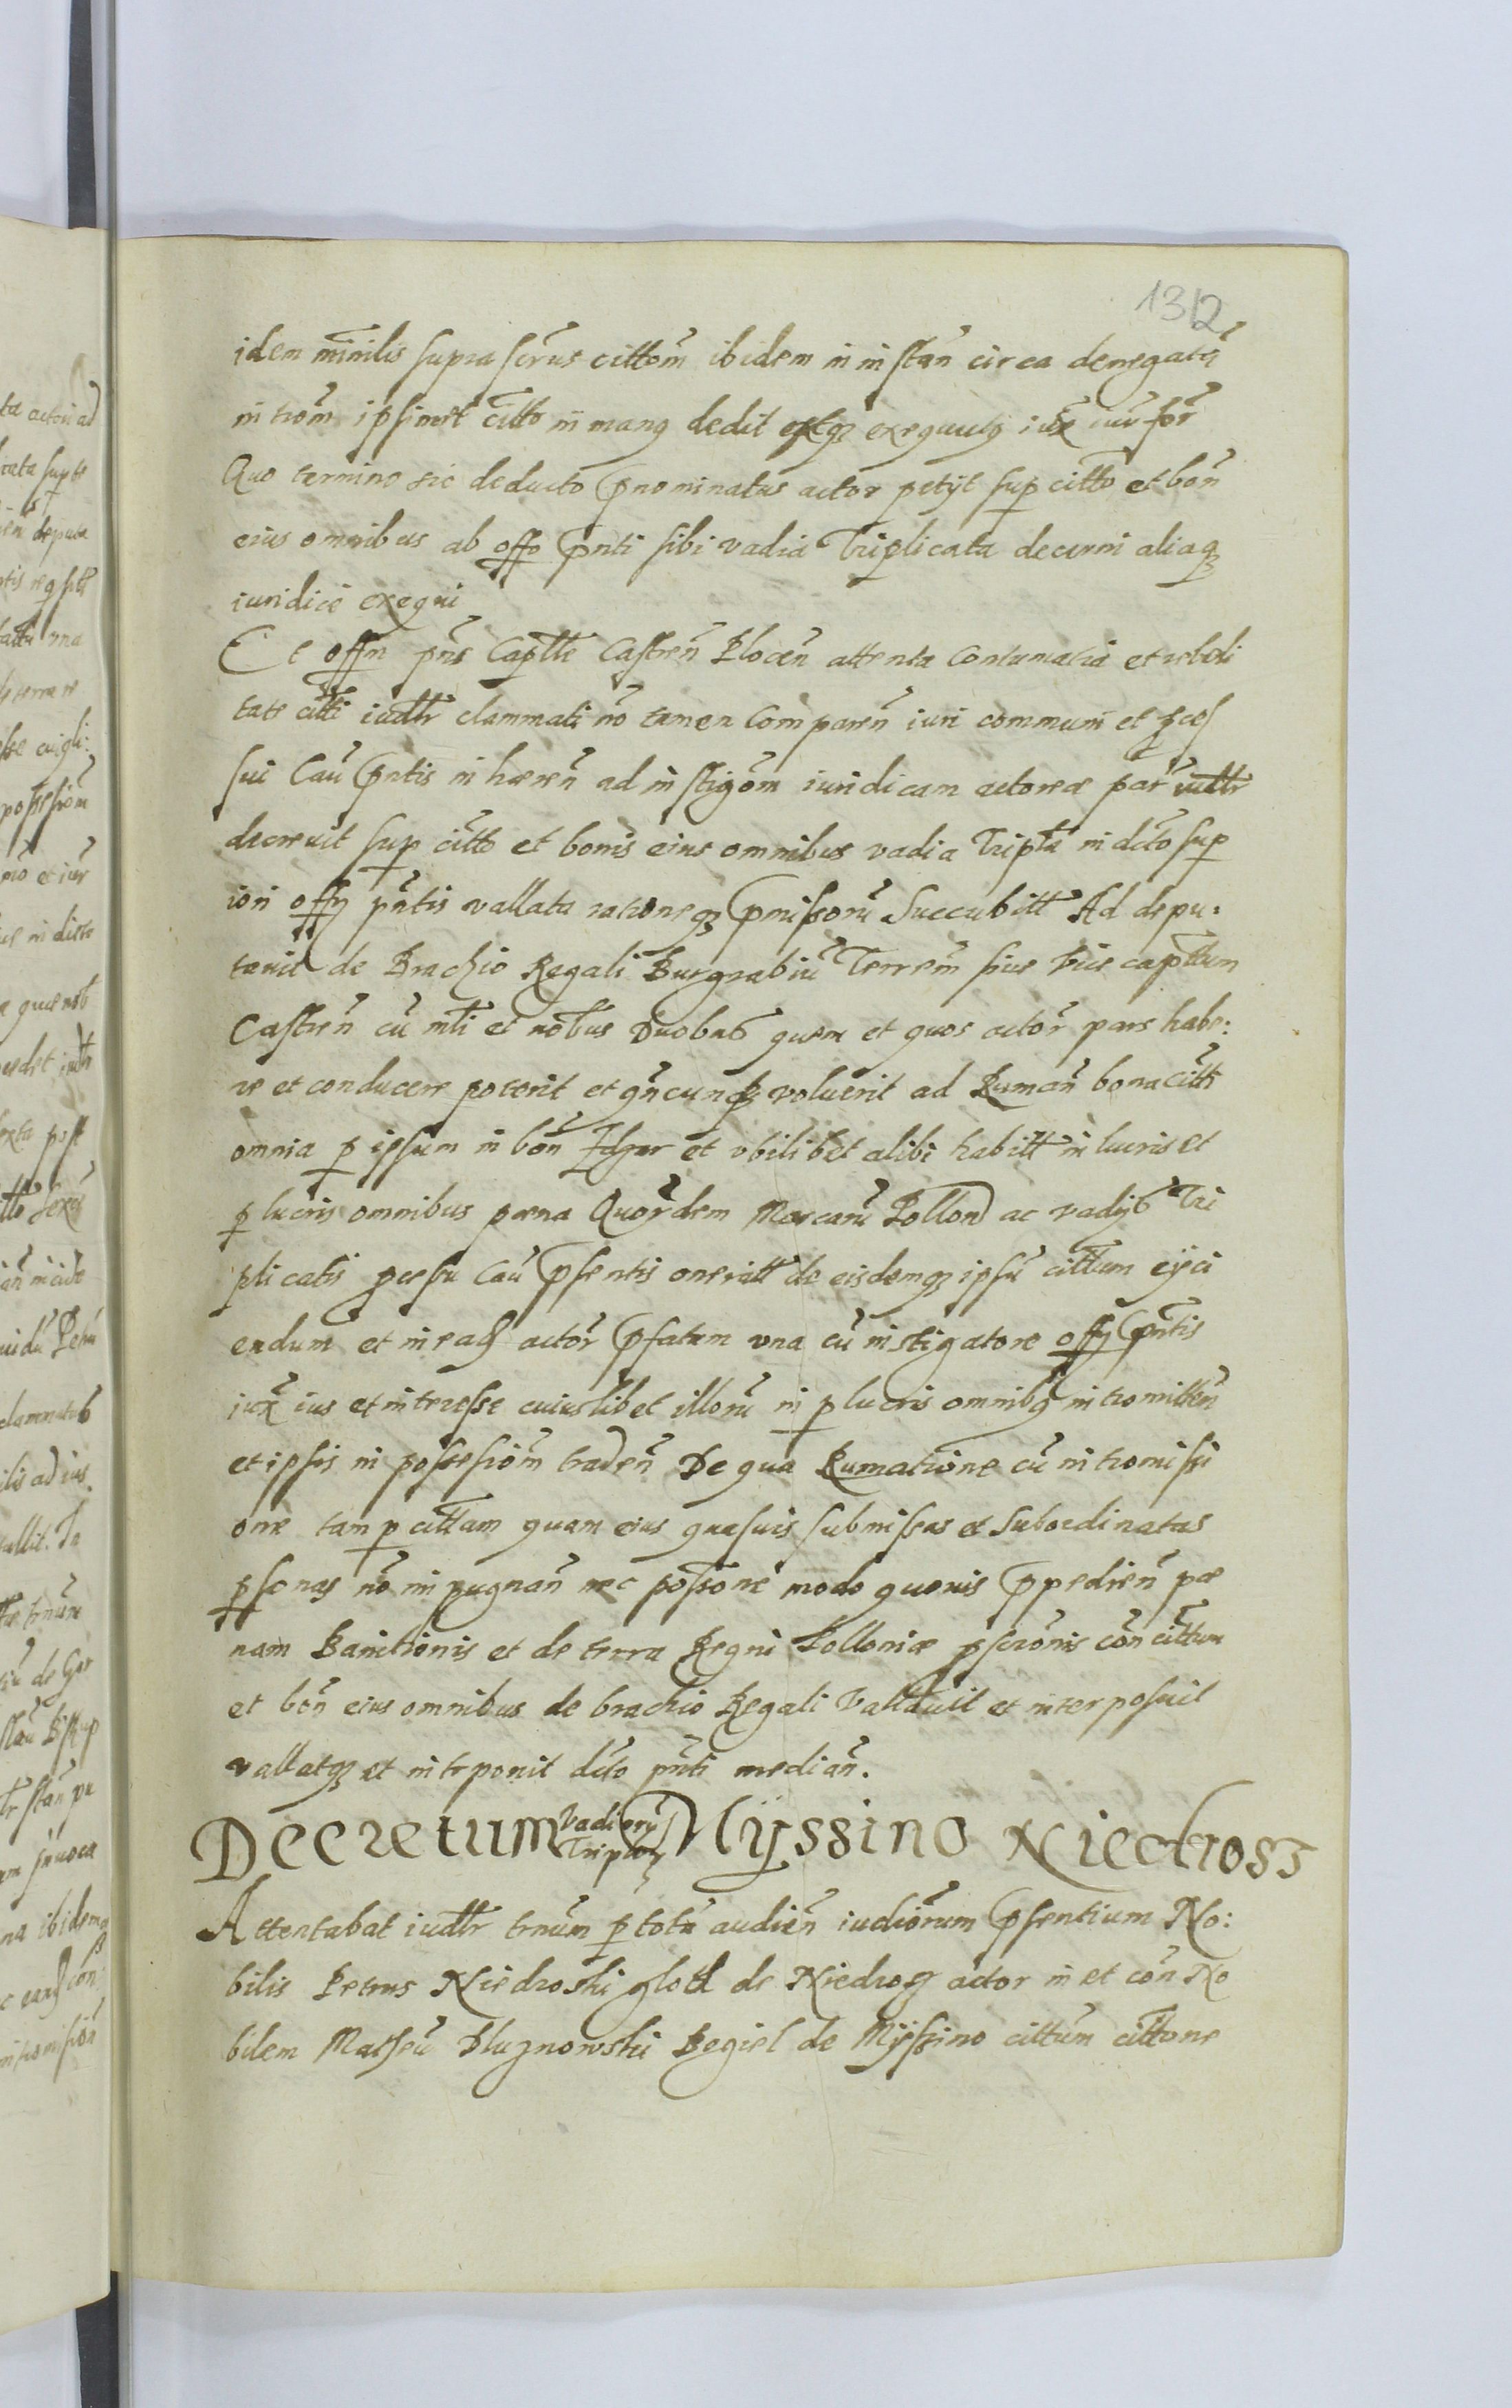 1312
idem minilis supra scrus cittom ibidem in instan circa denegatã
introm ipsimet citto in manq dedit estqz exequutq iux iur for
Quo termino sic deducto pnominatus actor petyt sup citto et bon
eius omnibus ab offo pnti sibi vadia Triplicata decerni aliaqz
iuridice exequi
Et offm pns Captle Castren Plocen attenta Contumatia et rebelli
tate citti iudtr clammati no tamen Comparen iuri communi et pces
sui Cau pntis inhæren ad instigom iuridicam actoreæ par iudtr
decrevit sup citto et bonis eius omnibus vadia Triplta in dcto sup
iori offy pntis vallata rationeqz pmissorũ Succubitt Ad depu:
tavit de Brachio Regali Burgrabiũ Terrem sive Vice capttum
Castren cũ mli et nobus Duobus quem et quos actor pars habe:
re et conducere poterit et qncunqz voluerit ad Ruman bona citti
omnia p ipsum in bon et vbilibet alibi habitt in lucris et
plucris omnibus pæna Quordem Marcarũ Pollon ac vadys Tri
plicatis pcessu Cau psentis oneratt de eisdemqz ipsũ cittum eyci
endum et in eas actor pfatum vna cũ instigatore offy pntis
iux ius et interesse cuiuslibet illorũ in plucris omnibq intromitten
et ipsis in possessiom traden De qua Rumatione cũ intromissi
one tam p cittam quam eius quasvis submissas et subordinatas
psonas no impugnan nec possione modo quovis ppedien pæ
nam Banitionis et de terra Regni Polloniæ pscronis con cittum
et bon eius omnibus de brachio Regali Vallavit et interposuit
vallatqz et intrponit dcto pnti median.
Decretum Vadiorũ Triplm Myssino Niedrosz
Attentabat iudtr trnum p totã audien iudiorum psentium No:
bilis Petrus Niedroski de Niedrosz actor in et con No
bilem Matheũ Dluznowski Begiel de Myssino cittum cittone